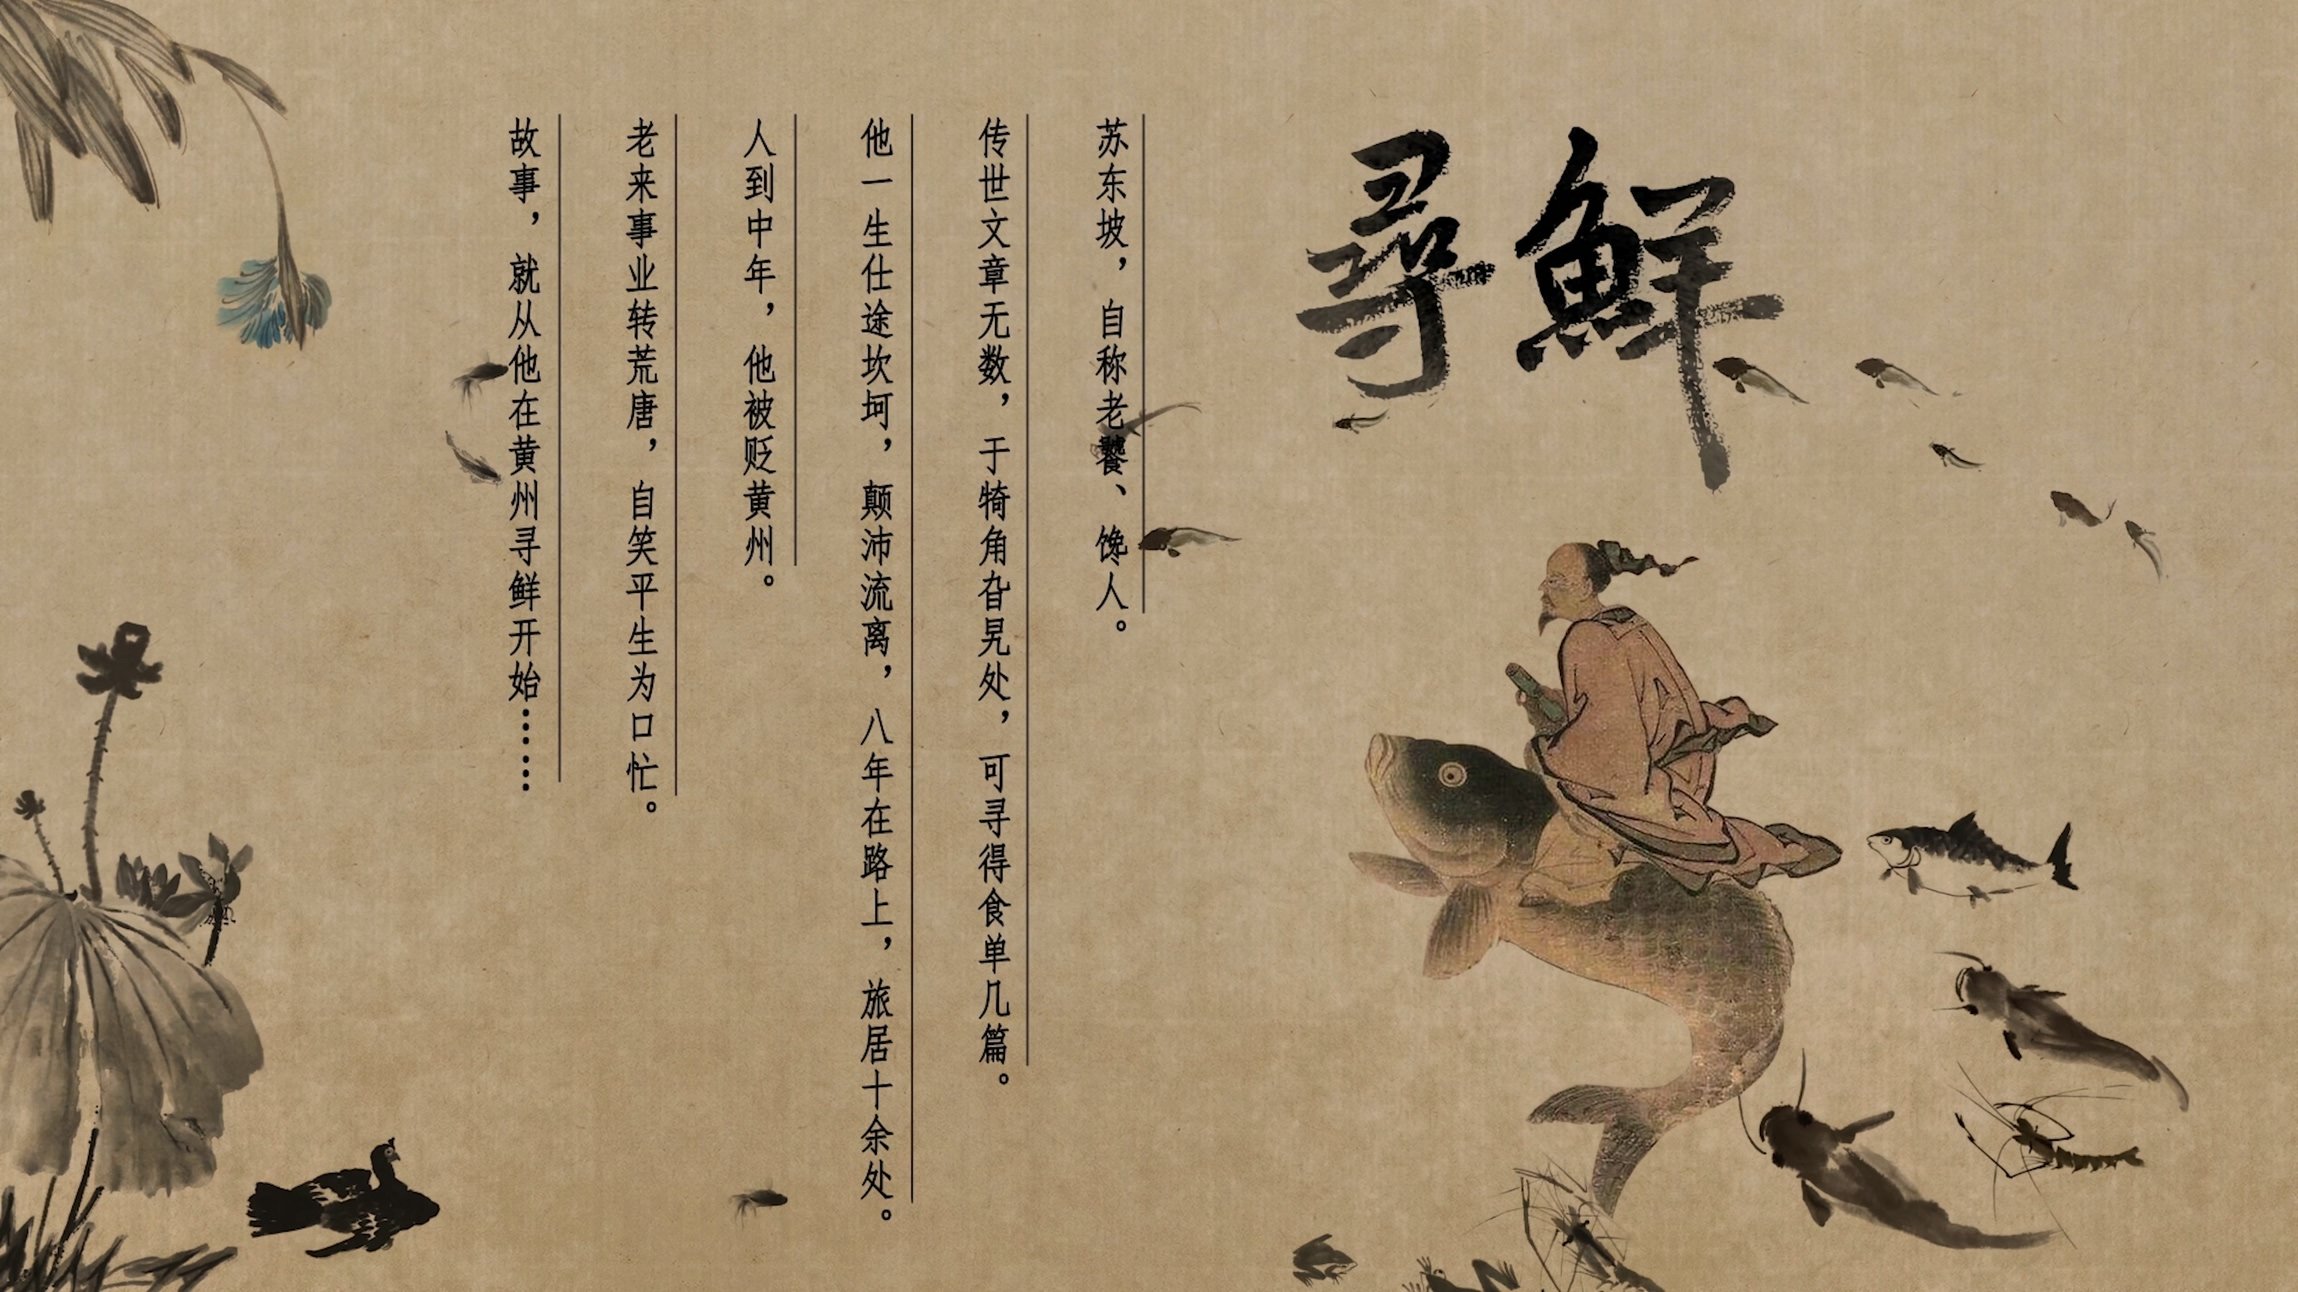 尋鮮
苏东坡，自称老饕、馋人。
传世文章无数，于犄角旮旯处，可寻得食单几篇。
他一生仕途坎坷，颠沛流离，八年在路上，旅居十余处。
人到中年，他被贬黄州。
老来事业转荒唐，自笑平生为口忙。
故事，就从他在黄州寻鲜开始……